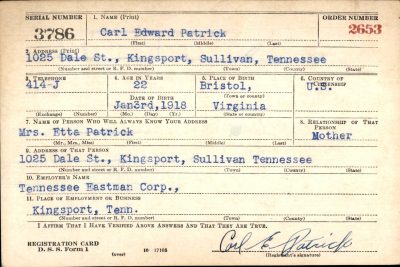 SERIAL NUMBER 1. NAME (Print) ORDER NUMBER
3786 Carl Edward Patrick 2653
(First) (Middle) (Last)
2. ADDRESS (Print)
1025 Dale St., Kingsport, Sullivan, Tennessee
(Number and street or R. F. D. number) (Town) (County) (State)
3. TELEPHONE 4. AGE IN YEARS 5. PLACE OF BIRTH 6. COUNTRY OF CITIZENSHIP
414-J 22 Bristol, U.S.
(Town or county)
DATE OF BIRTH
Jan3rd,1918 Virginia
(Exchange) (Number) (Mo.) (Day) (Yr.) (State or country)
7. NAME OF PERSON WHO WILL ALWAYS KNOW YOUR ADDRESS 8. RELATIONSHIP OF THAT PERSON
Mrs. Etta Patrick Mother
(Mr., Mrs., Miss) (First) (Middle) (Last)
9. ADDRESS OF THAT PERSON
1025 Dale St., Kingsport, Sullivan Tennessee
(Number and street or R. F. D. number) (Town) (County) (State)
10. EMPLOYER'S NAME
Tennessee Eastman Corp.,
11. PLACE OF EMPLOYMENT OR BUSINESS
Kingsport, Tenn.
(Number and street or R. F. D. number) (Town) (County) (State)
I AFFIRM THAT I HAVE VERIFIED ABOVE ANSWERS AND THAT THEY ARE TRUE.
REGISTRATION CARD
D. S. S. Form 1 (over) Carl E Patrick
(Registrant's signature)